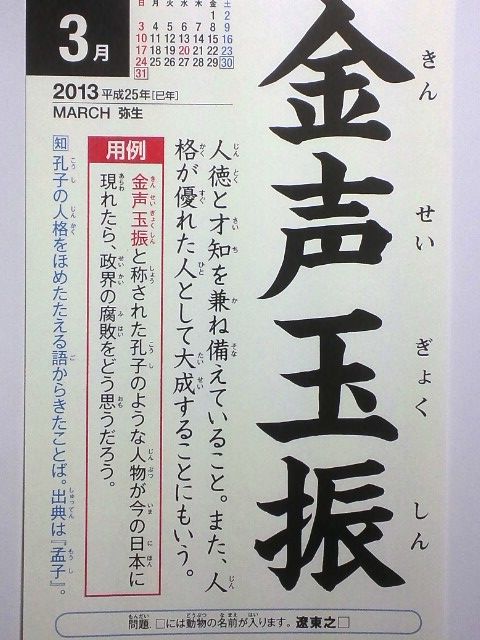 3月
日 月 火 水 木 金 土
1 2
3 4 5 6 7 8 9
10 11 12 13 14 15 16
17 18 19 20 21 22 23
24 25 26 27 28 29 30
31
2013 平成25年[巳年]
MARCH 弥生
金声玉振
きん せい ぎょく しん
人徳と才知を兼ね備えていること。また、人
格が優れた人として大成することにもいう。
用例
金声玉振と称された孔子のような人物が今の日本に
現れたら、政界の腐敗をどう思うだろう。
知 孔子の人格をほめたたえる語からきたことば。出典は『孟子』。
問題.□には動物の名前が入ります。遼東之□